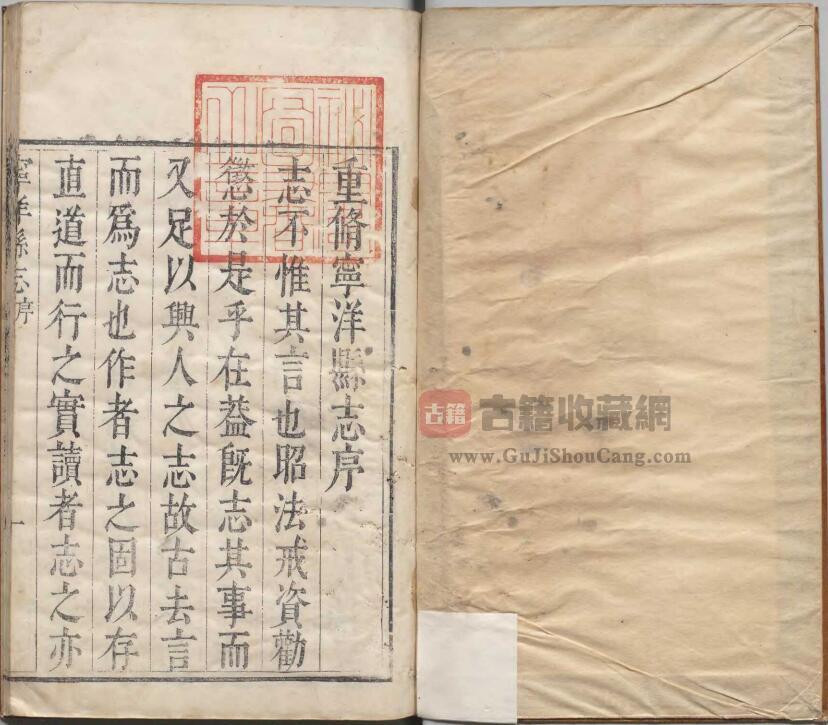 重脩寧洋縣志序
志不惟其言也昭法戒資勸
懲於是乎在葢旣志其事而
又足以興人之志故古去言
而爲志也作者志之固以存
直道而行之實讀者志之亦
寧洋縣志序
一
古籍
古籍收藏網
www.GuJiShouCang.com